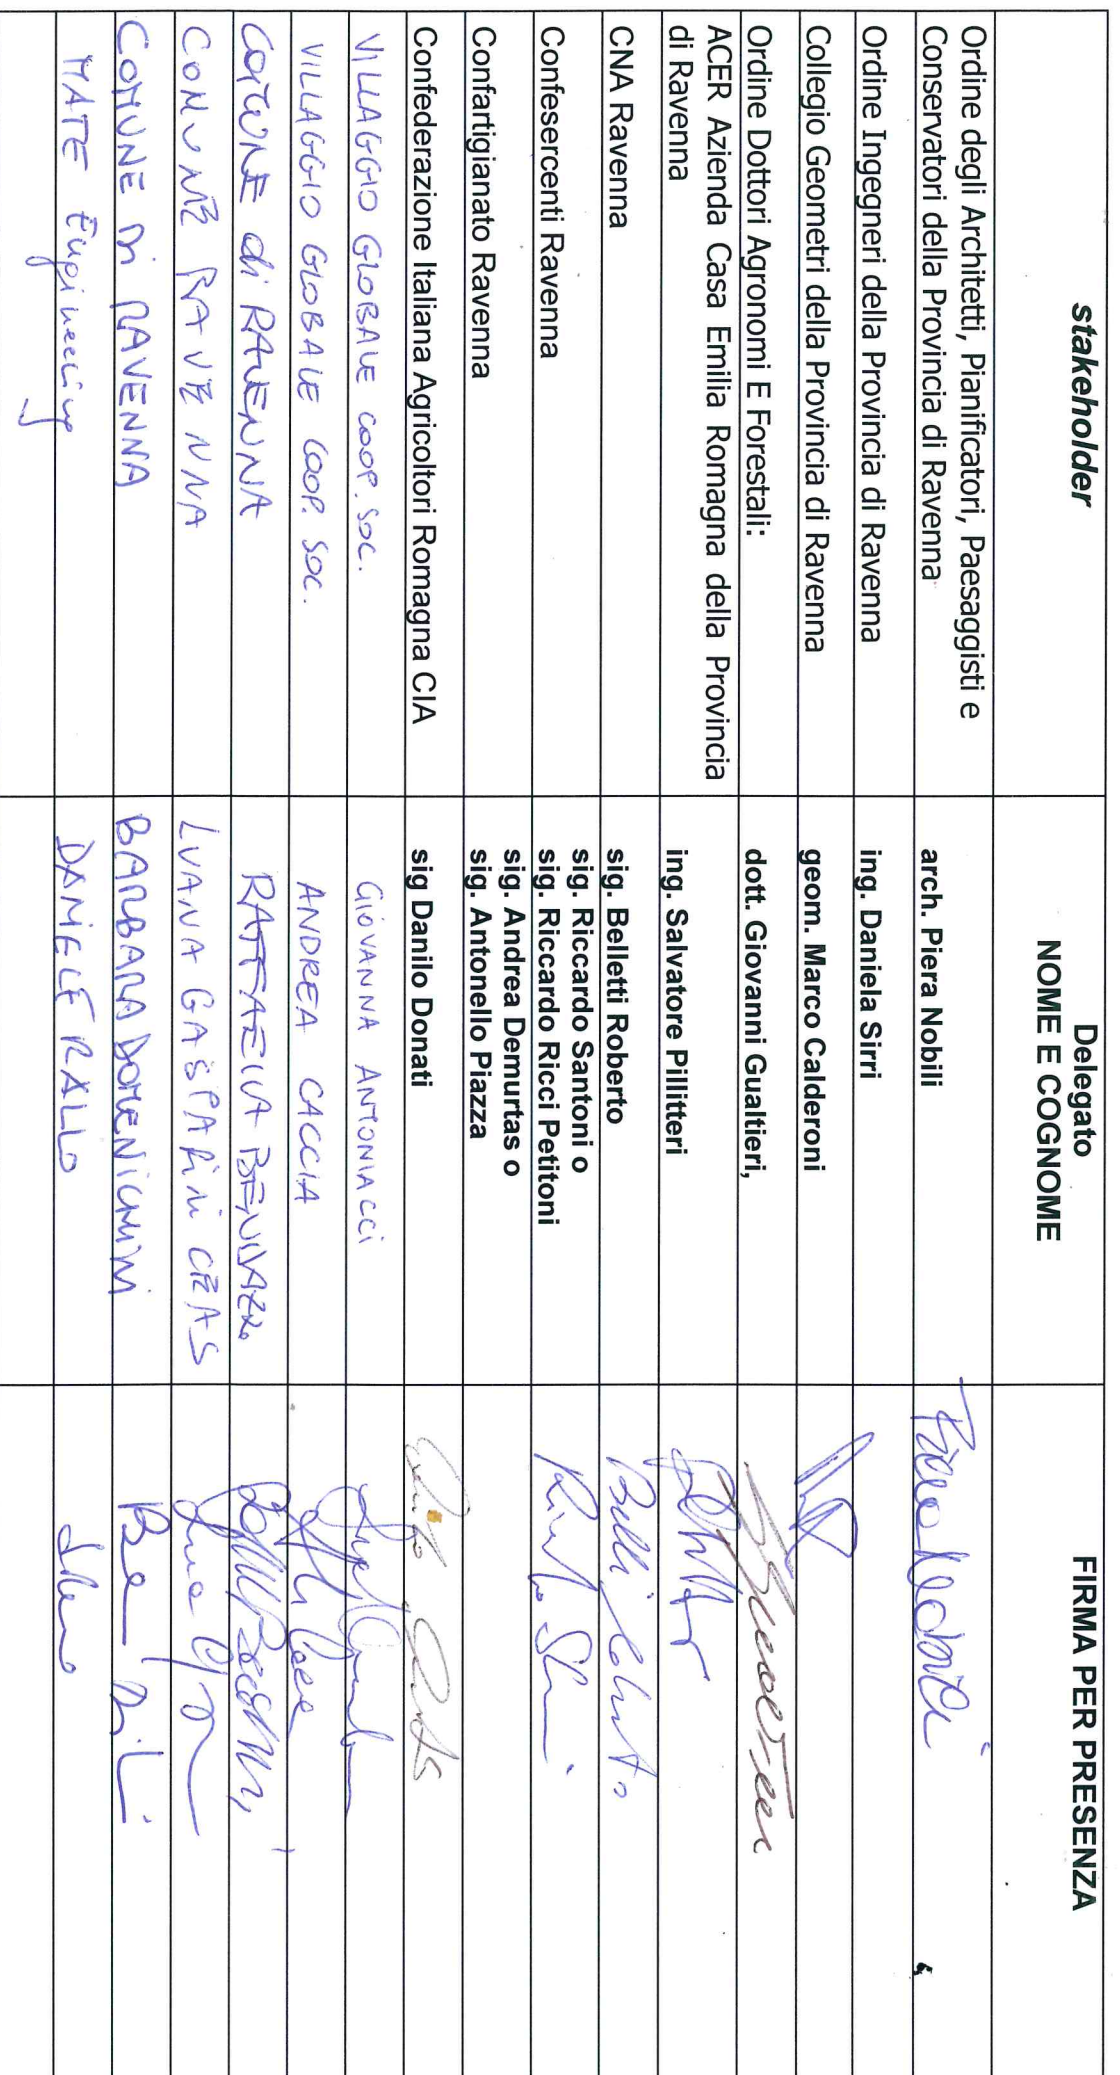 stakeholder
Delegato
NOME E COGNOME
FIRMA PER PRESENZA
Ordine degli Architetti, Pianificatori, Paesaggisti e
Conservatori della Provincia di Ravenna
arch. Piera Nobili
Ordine Ingegneri della Provincia di Ravenna
ing. Daniela Sirri
Collegio Geometri della Provincia di Ravenna
geom. Marco Calderoni
Ordine Dottori Agronomi E Forestali:
dott. Giovanni Gualtieri,
ACER Azienda Casa Emilia Romagna della Provincia
di Ravenna
ing. Salvatore Pillitteri
CNA Ravenna
sig. Belletti Roberto
Confesercenti Ravenna
sig. Riccardo Santoni o
sig. Riccardo Ricci Petitoni
Confartigianato Ravenna
sig. Andrea Demurtas o
sig. Antonello Piazza
Confederazione Italiana Agricoltori Romagna CIA
sig Danilo Donati
VILLAGGIO GLOBALE COOP. SOC.
GIOVANNA ANTONIACCI
VILLAGGIO GLOBALE COOP. SOC.
ANDREA CACCIA
COMUNE di RAVENNA
RAFFAELLA
COMUNE RAVENNA
LUANA GASPARINI CEAS
COMUNE DI RAVENNA
BARBARA DOMENICHINI
MATE Engineering
DANIELE RALLO